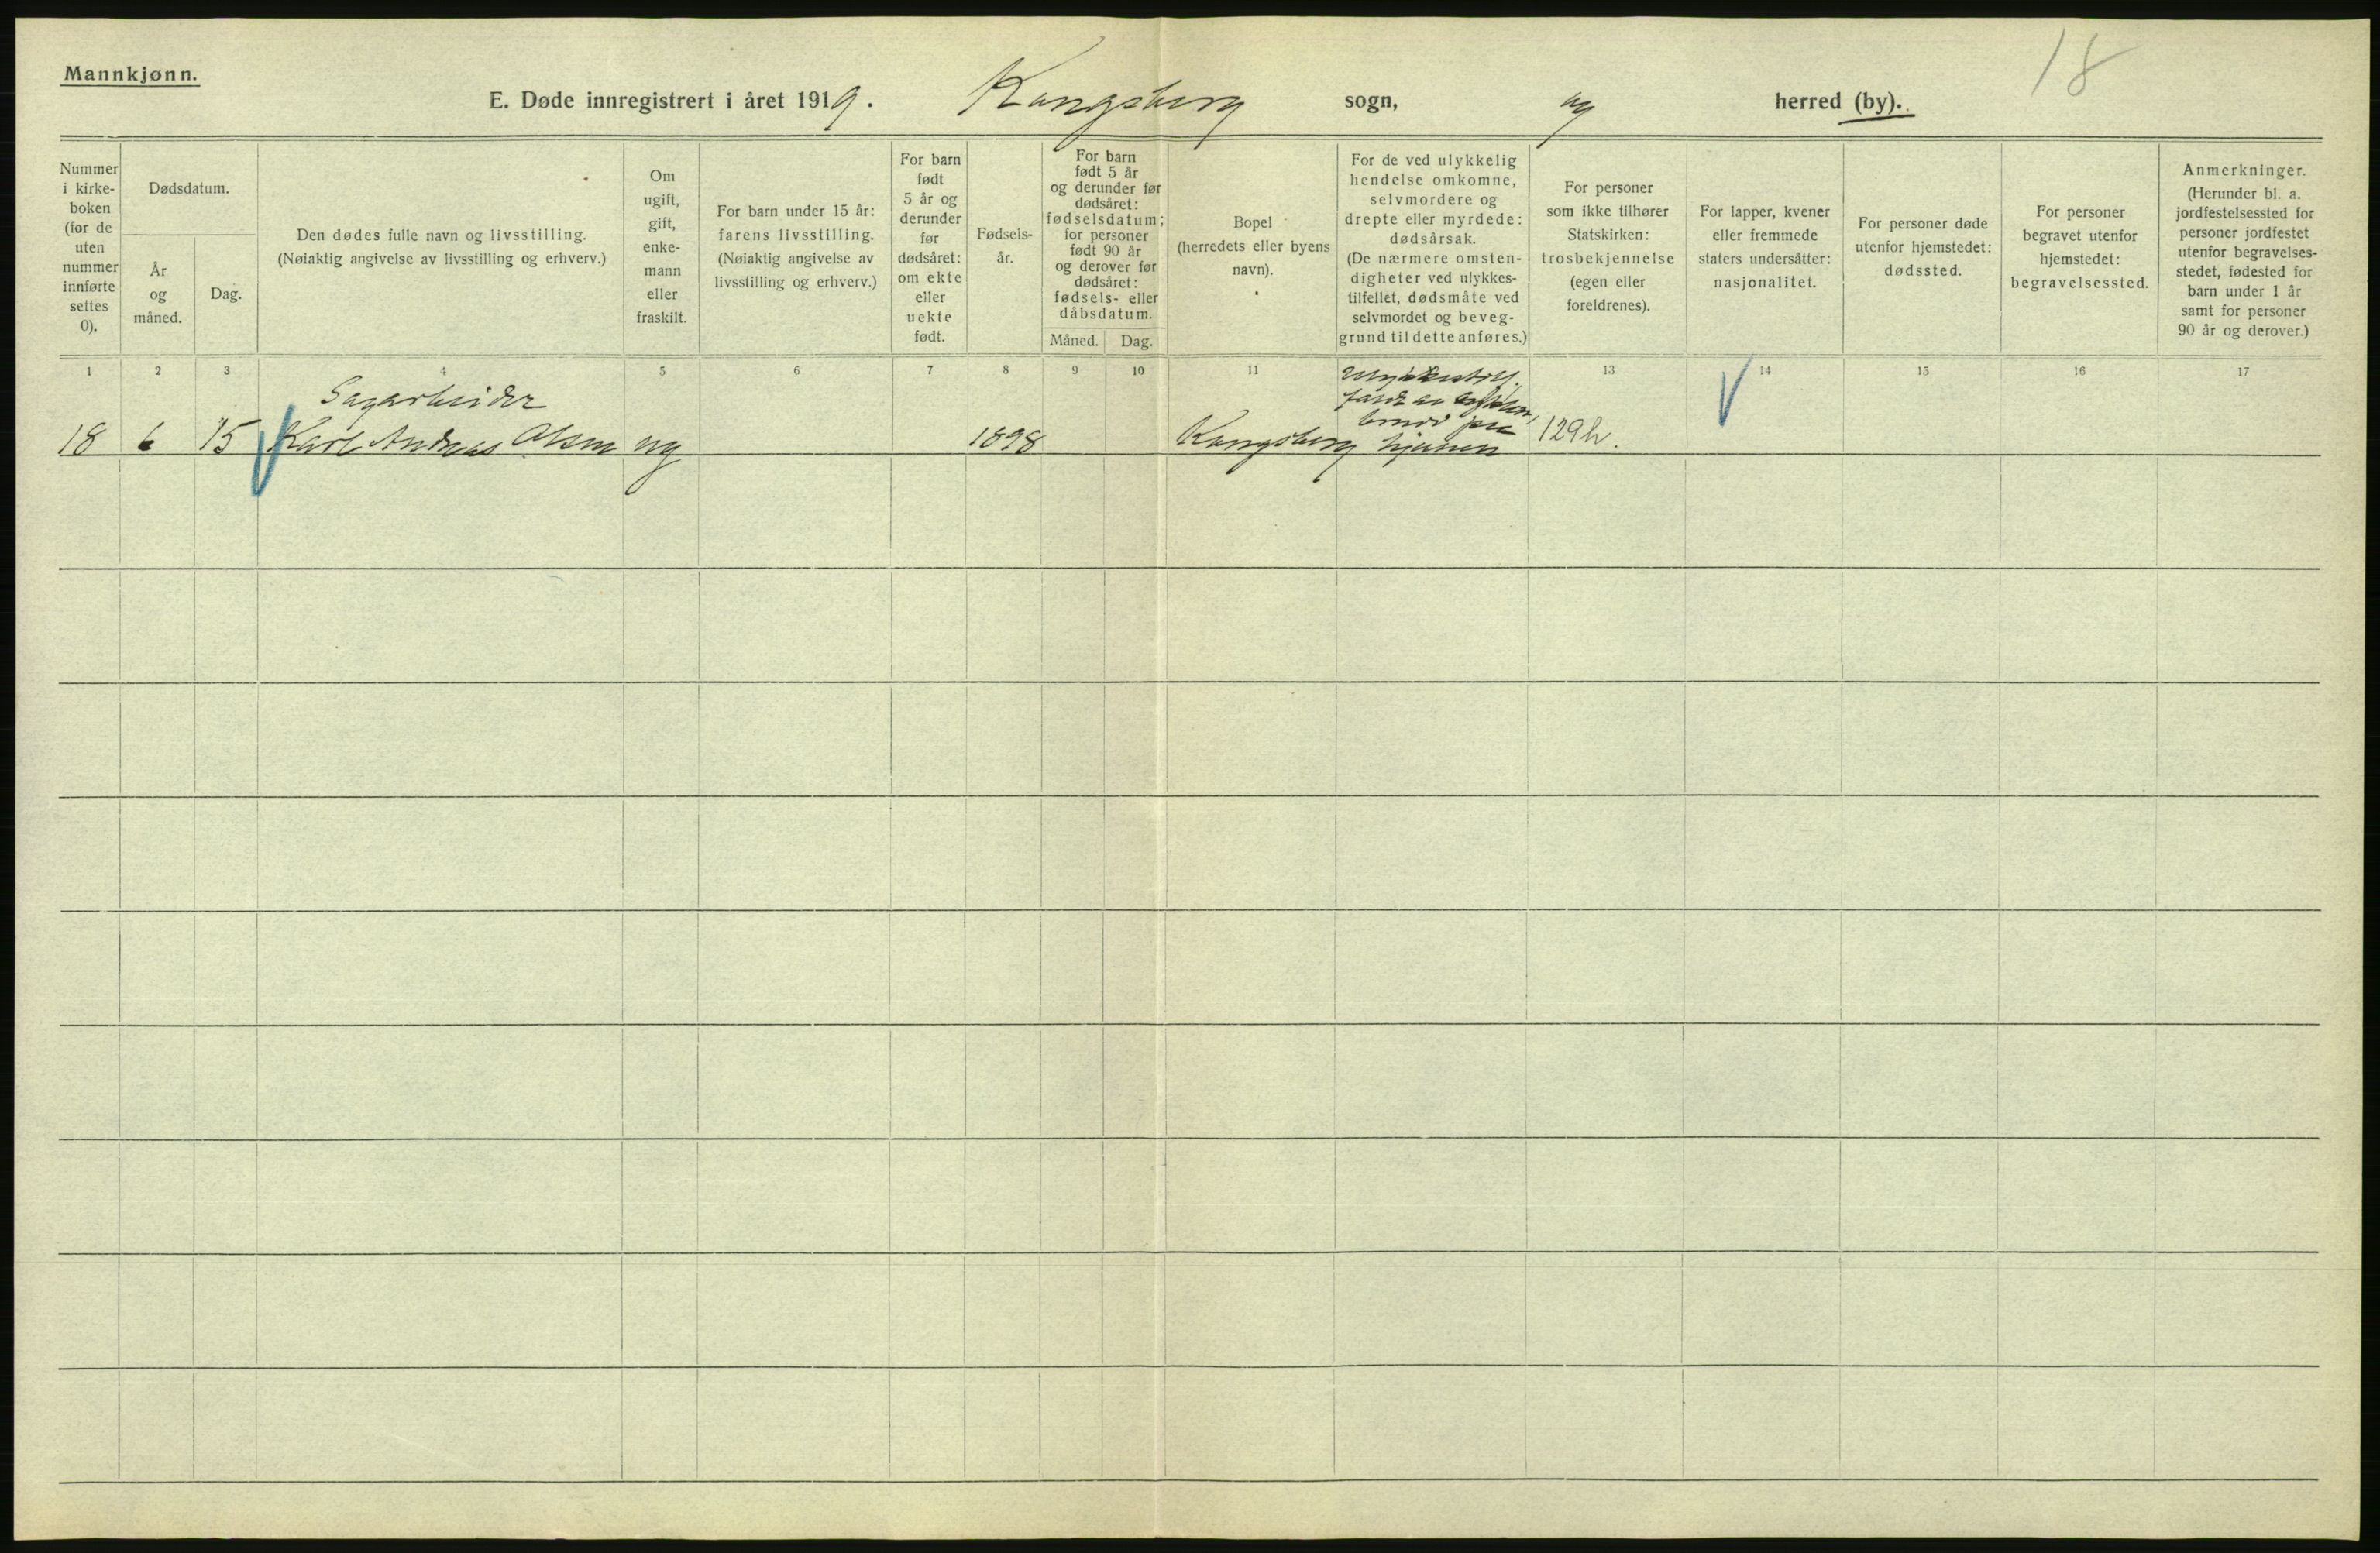 18
Mannkjønn.
E. Døde innregistrert i året 1919. Kongsberg sogn, og herred (by).
Nummer i kirke-boken (for de uten nummer innførte settes 0).
Dødsdatum.
År og måned.
Dag.
Den dødes fulle navn og livsstilling.
(Nøiaktig angivelse av livsstilling og erhverv.)
Om ugift, gift, enke-mann eller fraskilt.
For barn under 15 år:
farens livsstilling.
(Nøiaktig angivelse av
livsstilling og erhverv.)
For barn født 5 år og derunder før dødsåret: om ekte eller uekte født.
Fødsels-
år.
For barn
født 5 år
og derunder før
dødsåret:
fødselsdatum;
for personer
født 90 år
og derover før
dødsåret:
fødsels- eller
dåbsdatum.
Måned. Dag.
Bopel
(herredets eller byens
navn).
For de ved ulykkelig
hendelse omkomne,
selvmordere og
drepte eller myrdede:
dødsårsak.
(De nærmere omsten-
digheter ved ulykkes-
tilfellet, dødsmåte ved
selvmordet og beveg-
grund til dette anføres.)
For personer
som ikke tilhører
Statskirken:
trosbekjennelse
(egen eller
foreldrenes).
For lapper, kvener
eller fremmede
staters undersåtter:
nasjonalitet.
For personer døde
utenfor hjemstedet:
dødssted.
For personer
begravet utenfor
hjemstedet:
begravelsessted.
Anmerkninger.
(Herunder bl. a.
jordfestelsessted for
personer jordfestet
utenfor begravelses-
stedet, fødested for
barn under 1 år
samt for personer
90 år og derover.)
1 2 3 4 5 6 7 8 9 10 11 13 14 15 16 17
Sagarbeider
18 6 15 Karl Andreas Olsen ug 1898 Kongsberg
Ulykkestilf.
faldt av
brudd paa
hjernen
129h.